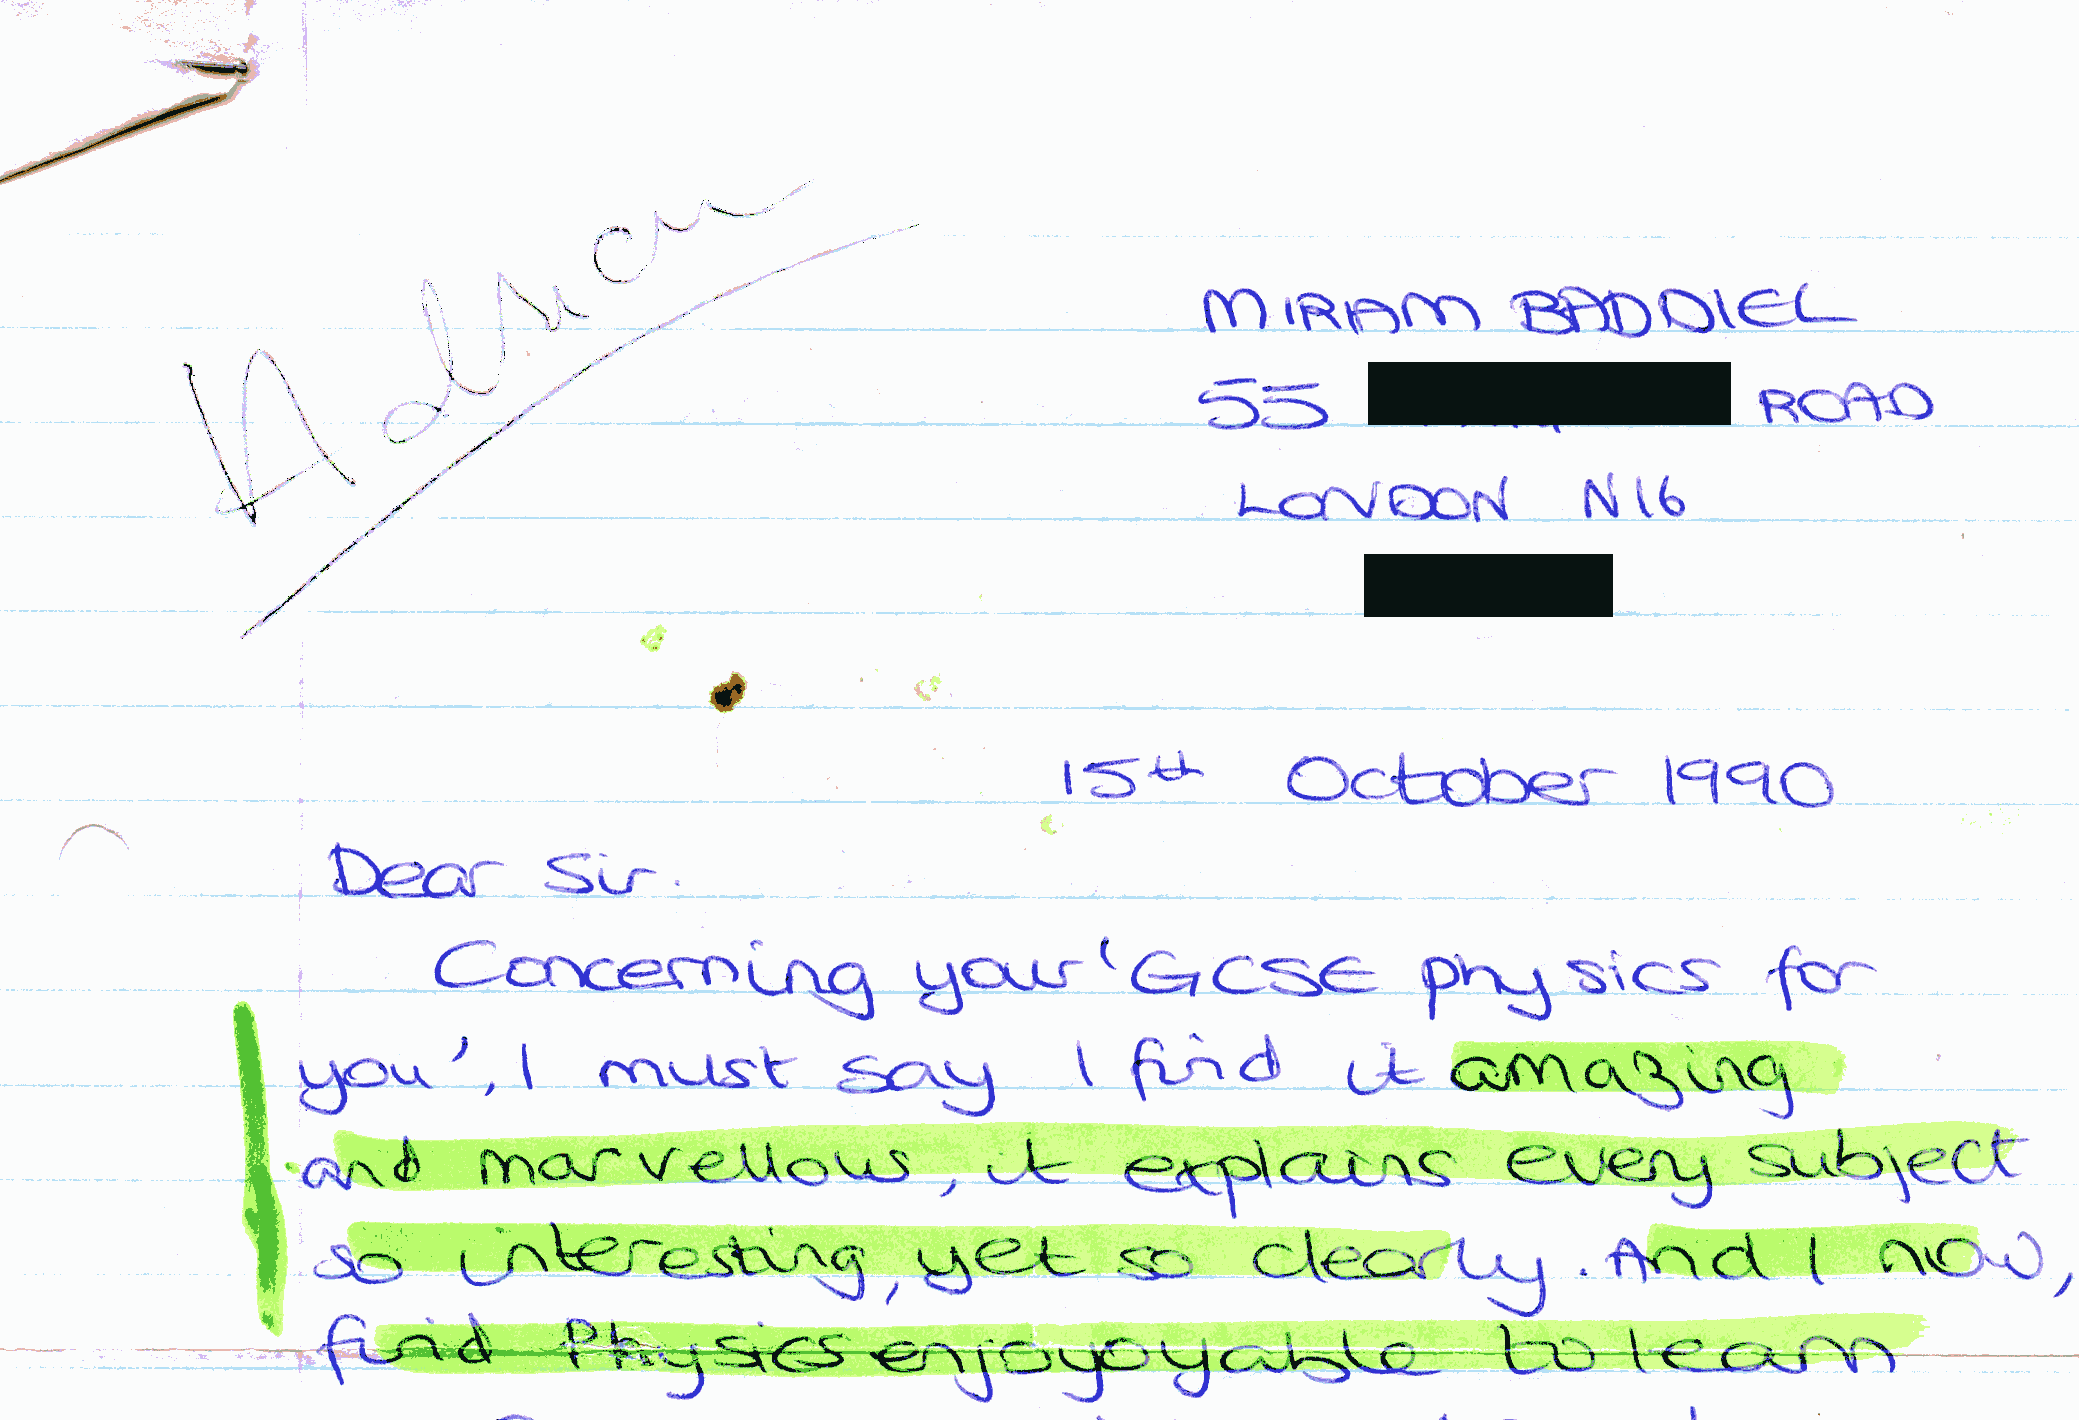 Adrian
MIRIAM BADDIEL
55 ROAD
LONDON N16
15th October 1990
Dear Sir.
Concerning your 'GCSE physics for
you', I must say I find it amazing
and marvellous, it explains every subject
so interesting, yet so clearly. And I now,
find Physics enjoyoyable to learn